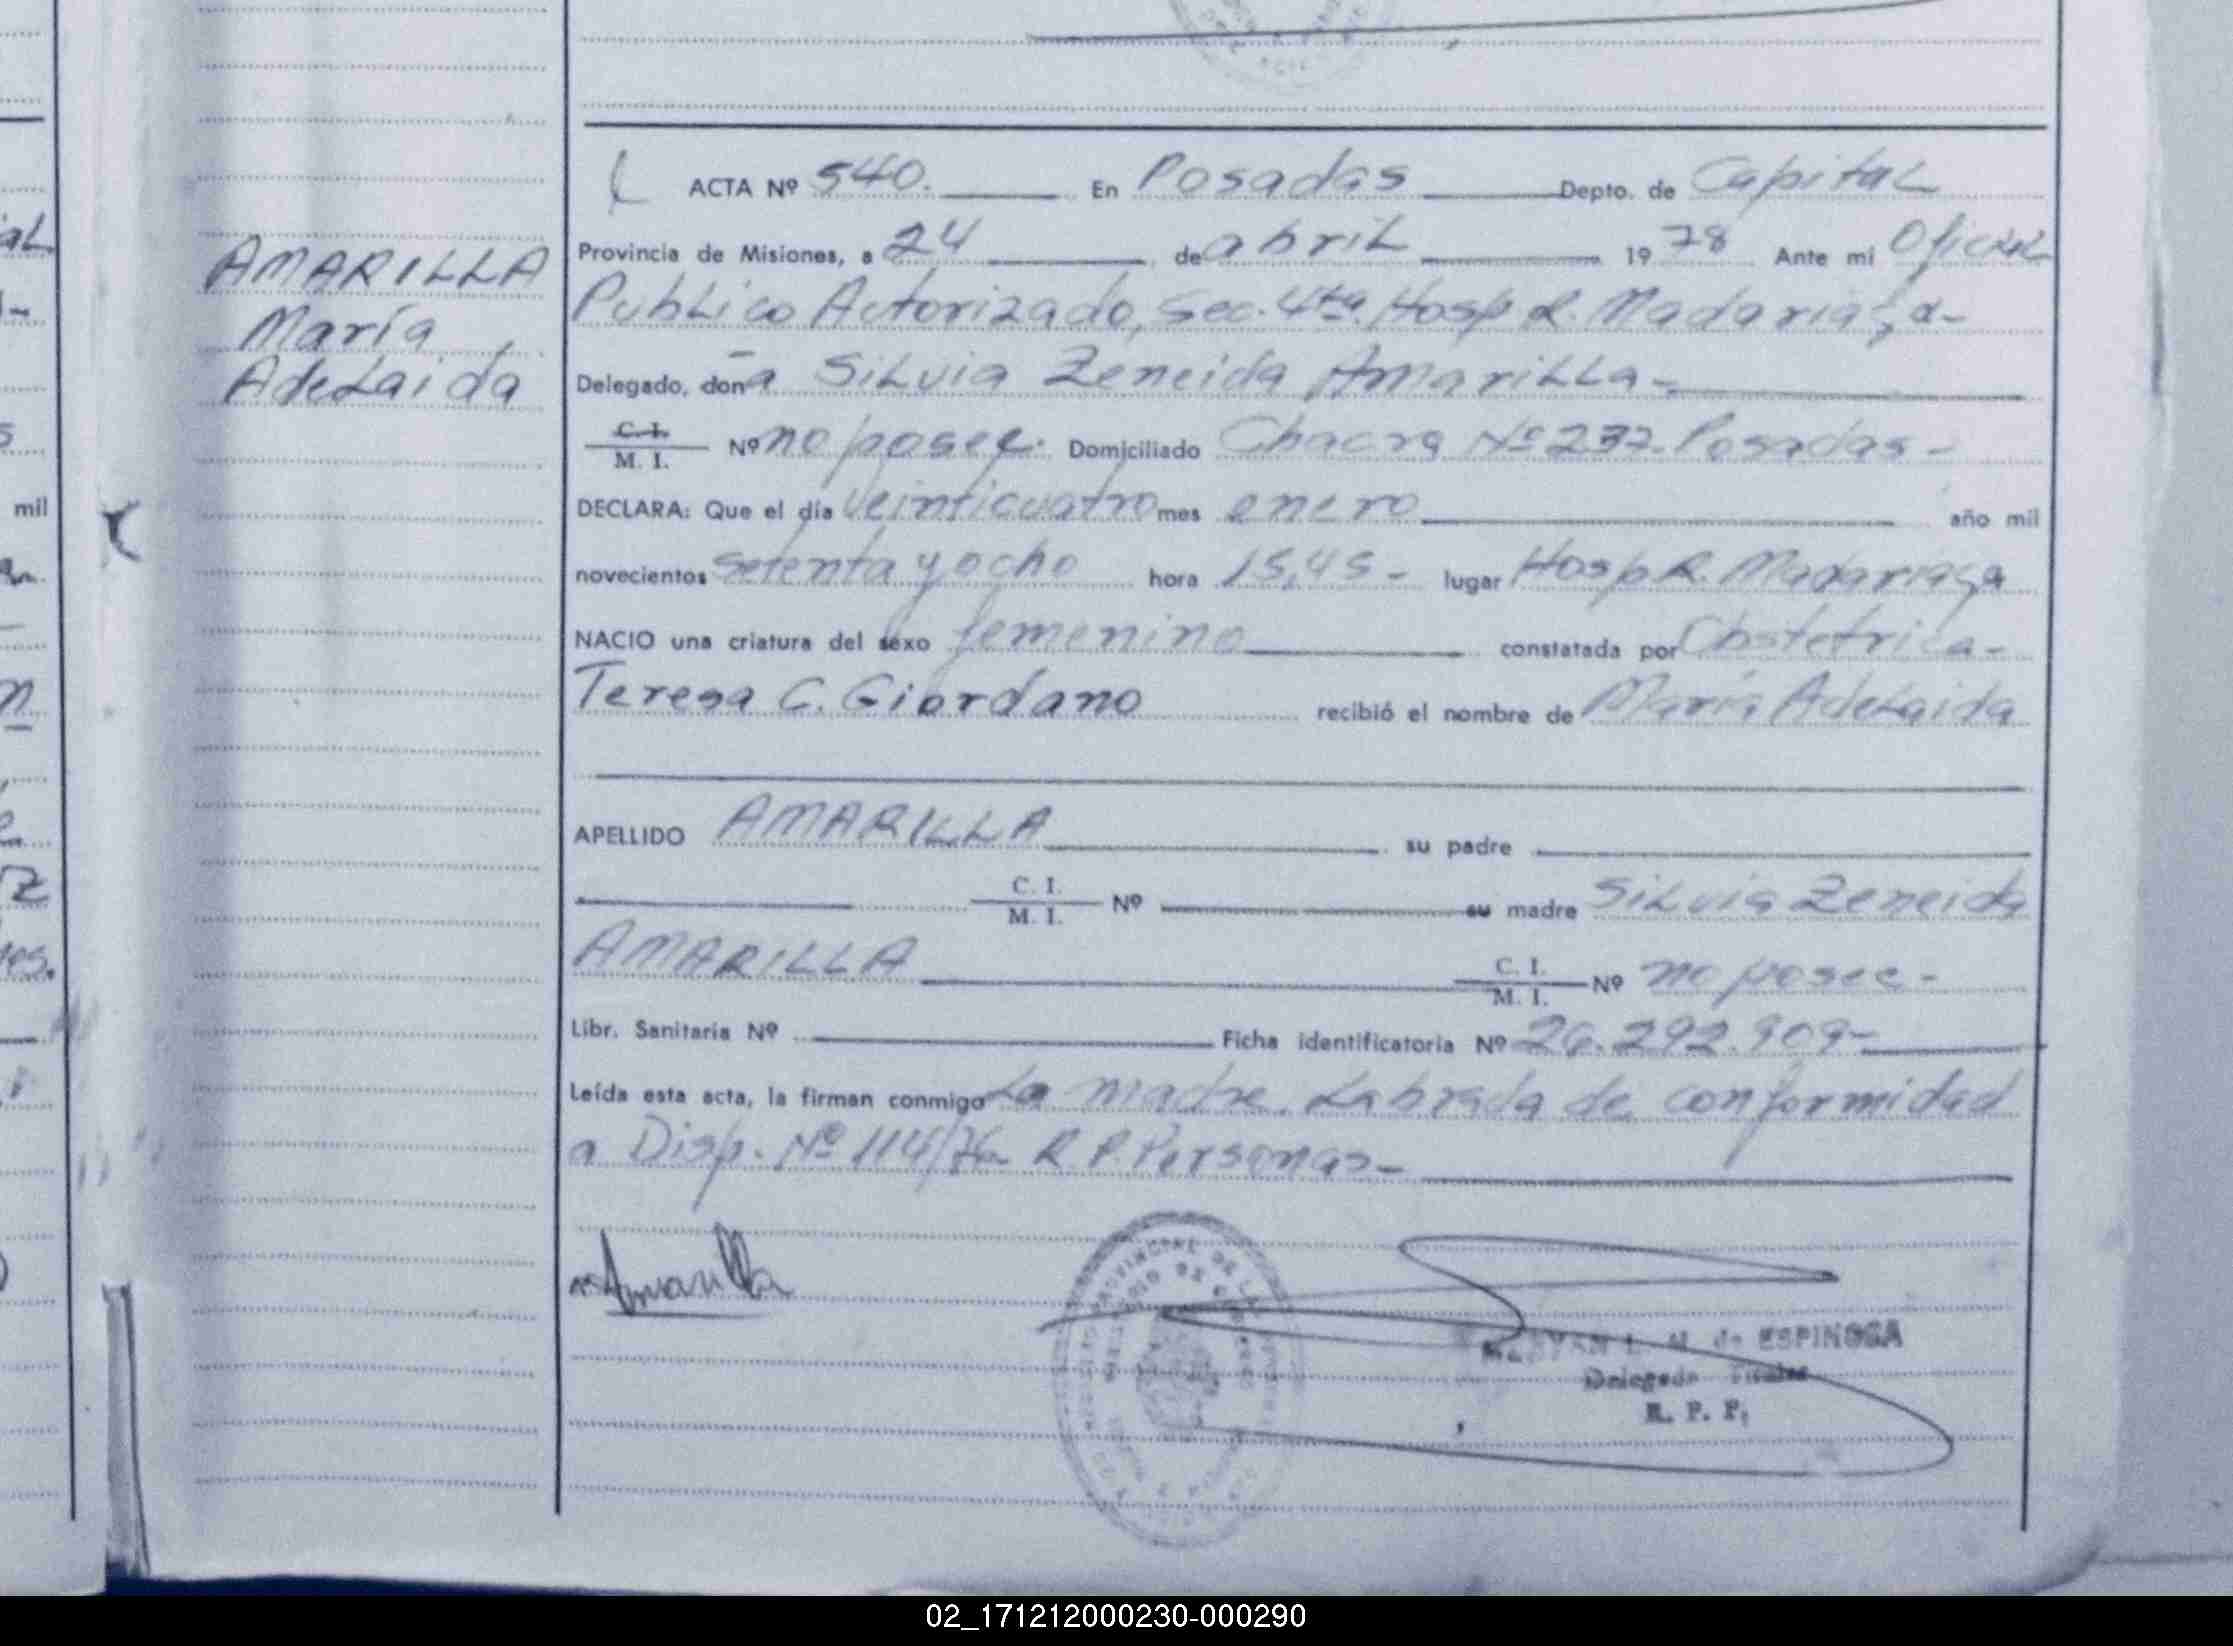 AMARILLA
María
Adelaida
ACTA Nº 540. En Posadas Depto. de Capital
Provincia de Misiones, a 24 de abril 1978 Ante mi Oficial
Publico Autorizado, Sec. 4ta. Hosp R. Madariaga-
Delegado, doña Silvia Zeneida Amarilla-
C. I.
M. I. Nº no posee. Domiciliado Chacra Nº 237- Posadas-
DECLARA: Que el día veinticuatro mes enero año mil
novecientos setenta y ocho hora 15,45- lugar Hosp R. Madariaga
NACIO una criatura del sexo femenino constatada por Obstetrica-
Teresa C. Giordano recibió el nombre de María Adelaida
APELLIDO AMARILLA su padre
C. I.
M. I. Nº su madre Silvia Zeneida
AMARILLA C. I.
M. I. Nº no posee-
Libr. Sanitaria Nº Ficha identificatoria Nº 26.292.909-
Leída esta acta, la firman conmigo La madre. Labrada de conformidad
a Disp. Nº 114/76 R. P. Personas-
Amarilla
L. M. de ESPINOSA
Delegado Titular
R. P. P.
mil
02_171212000230-000290